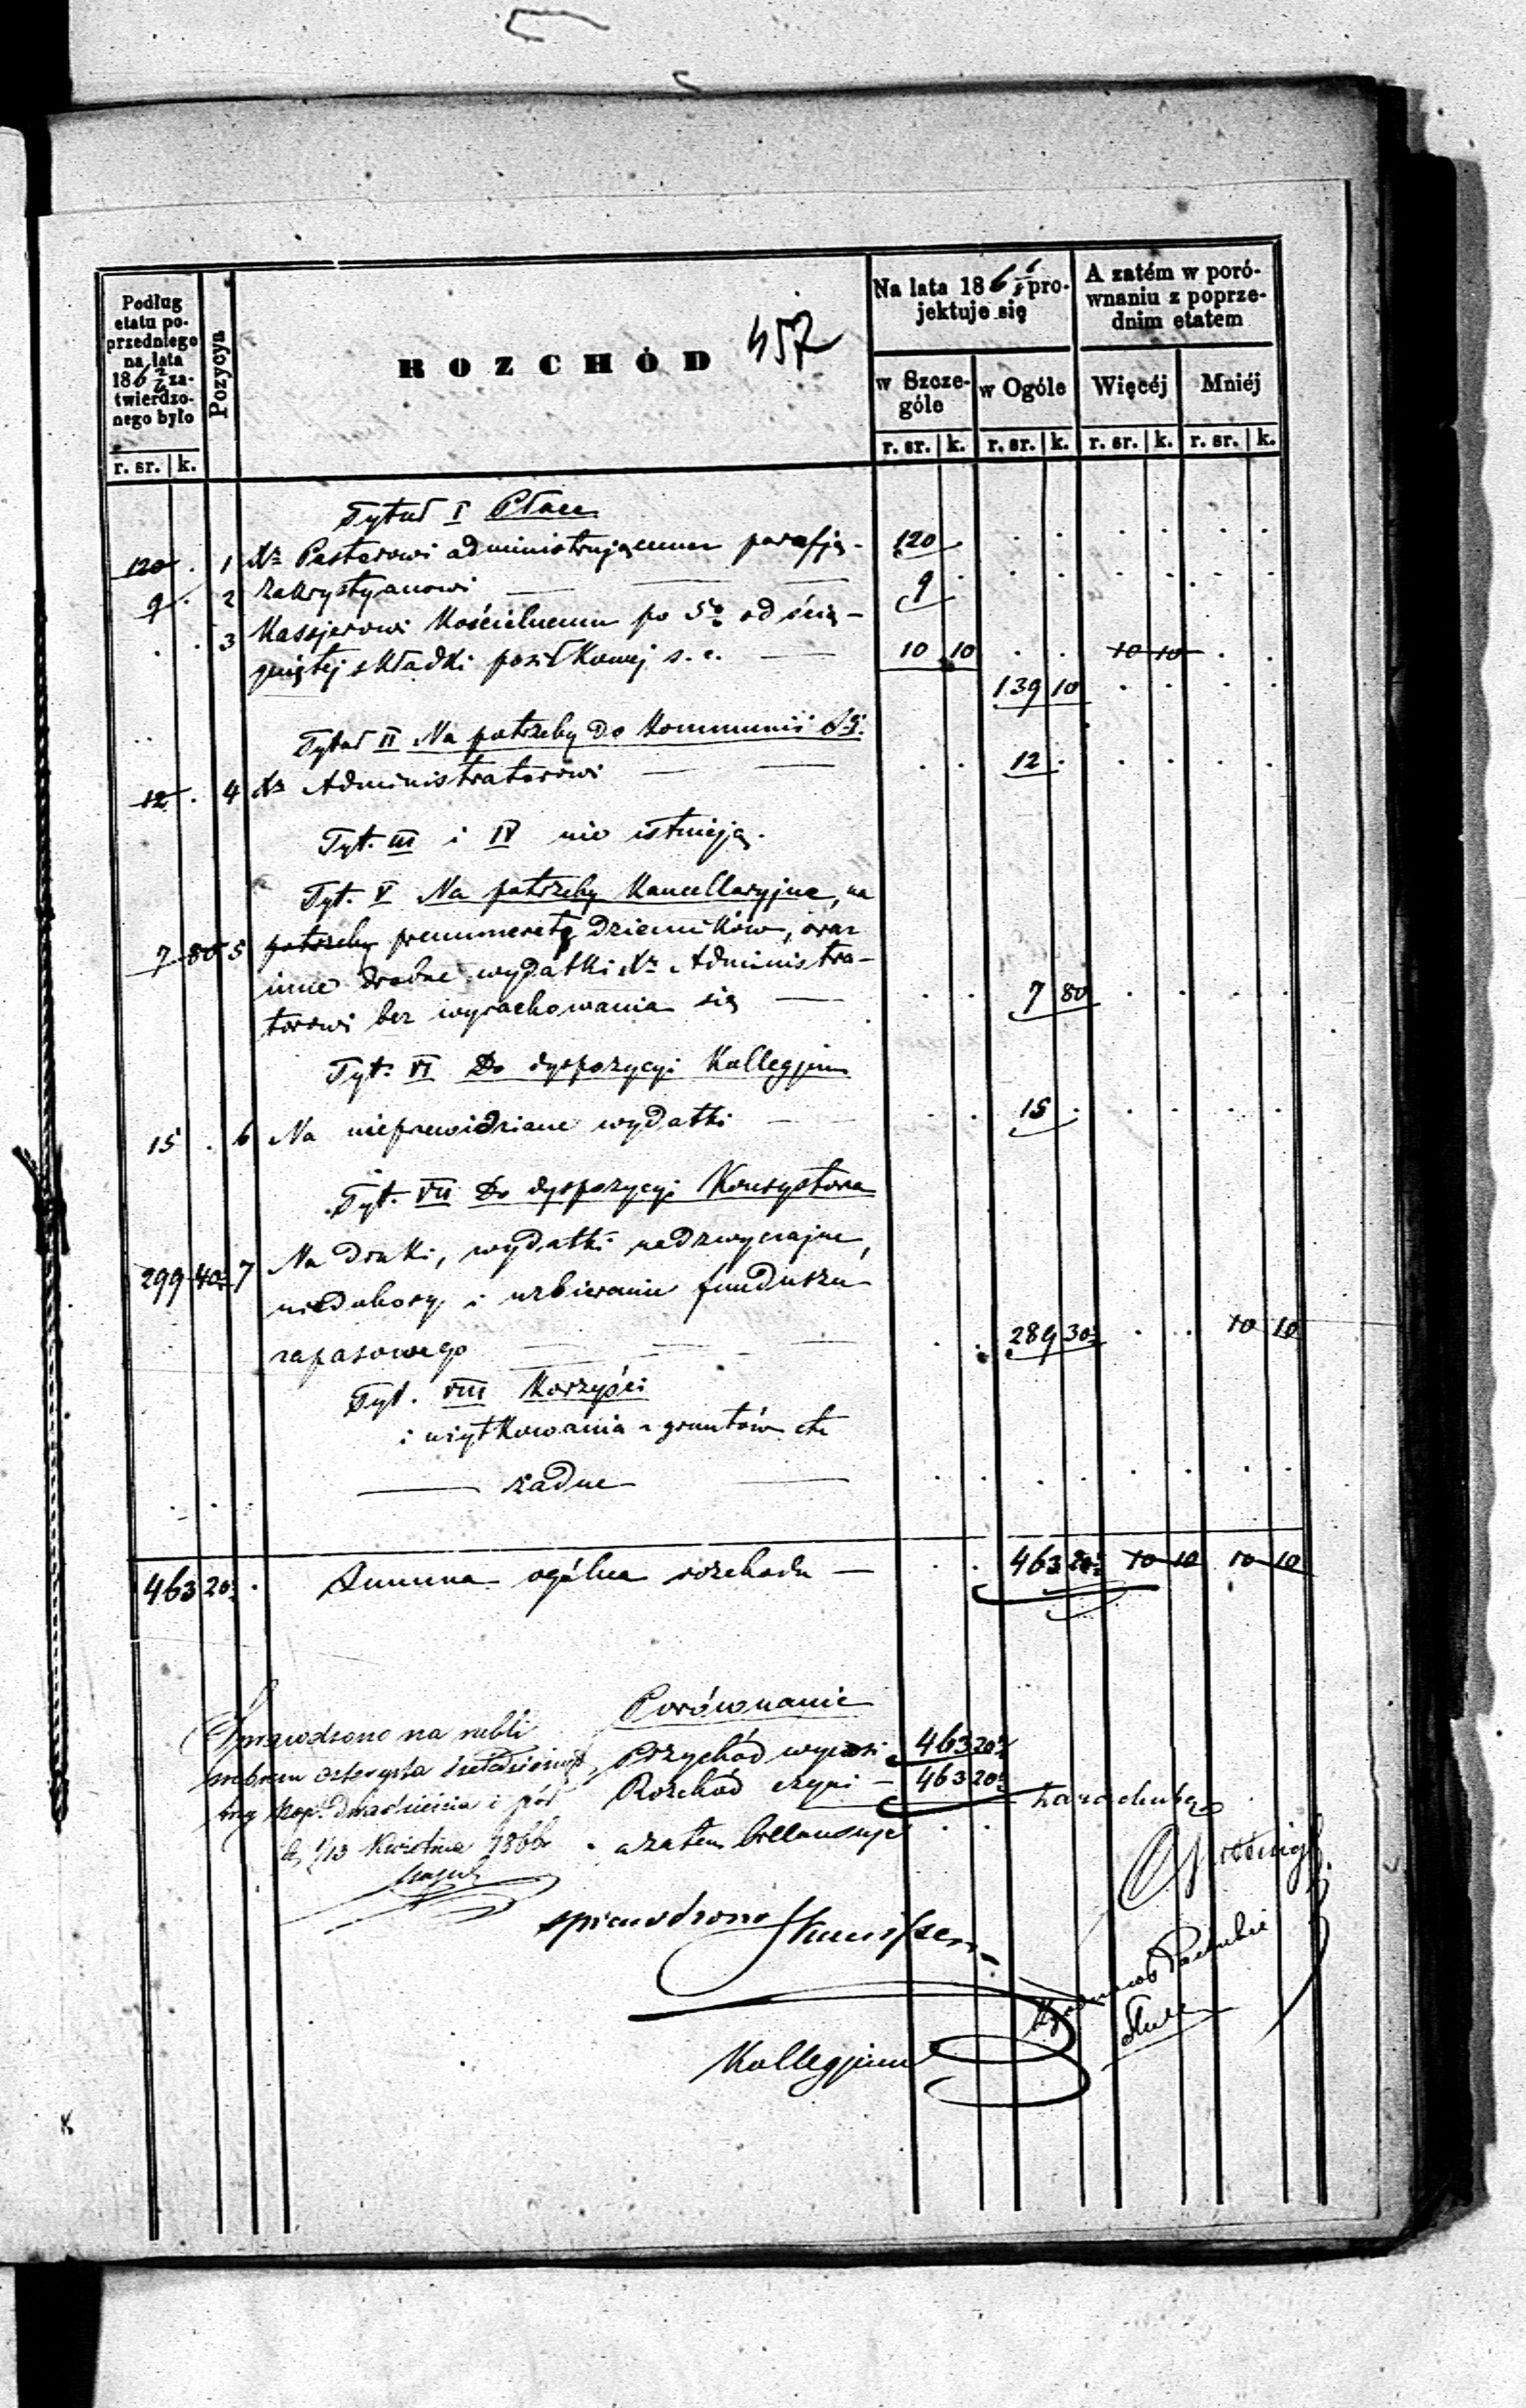 457
ROZCHÓD
Podług
etatu po-
przedniego
na lata
186 2/4 za-
twierdzo-
nego było
Pozycya
Na lata 186 pro-
jektuje się
A zatém w poró-
wnaniu z poprze-
dnim etatem
w Szcze-
góle
w Ogóle
Więcéj
Mniéj
r. sr. k. r. sr. k. r. sr. k. r. sr. k. r. sr. k.
Tytuł I Płace
120 . 1 Xu Pastorowi administrującemu parafją - 120 .
9 . 2 Zakrystyanowi 9 .
. . 3 Kassjerowi Kościelnemu po 5% od ścią-
gniętej składki posiłkowej s. c. 10 10 . . 10 10 . .
139 10
Tytuł II Na potrzeby do Kommunii Sej.
12 . 4 Xu Administratorowi 12 .
Tyt. III i IV nie istnieją.
Tyt. V Na potrzeby Kancellaryjne, na
7 80 5 potrzeby prenumeratę dzienników, oraz
inne drobne wydatki Xu Administra-
torowi bez wyrachowania się 7 80
Tyt. VI Do dyspozycyi Kollegjum
15 . 6 Na nieprzewidziane wydatki 15 .
Tyt. VII Do dyspozycyi Konsystorza
299 40½ 7 Na druki, wydatki nadzwyczajne,
niedobory i uzbieranie funduszu
zapasowego 289 30½ . . 10 10
Tyt. VIII Korzyści
i użytkowania z gruntów etc
żadne
463 20½ . Summa ogólna rozchodu — 463 20½ 10 10 10 10
Porównanie
Przychód wynosi 463 20½
Rozchód czyni — 463 20½
a zatem billansuje
Sprawdzono na rubli
srebrem czterysta sześćdziesiąt
trzy kop. dwadzieścia i pół
d. 1/13 Kwietnia 1866
sprawdzono
Kollegjum